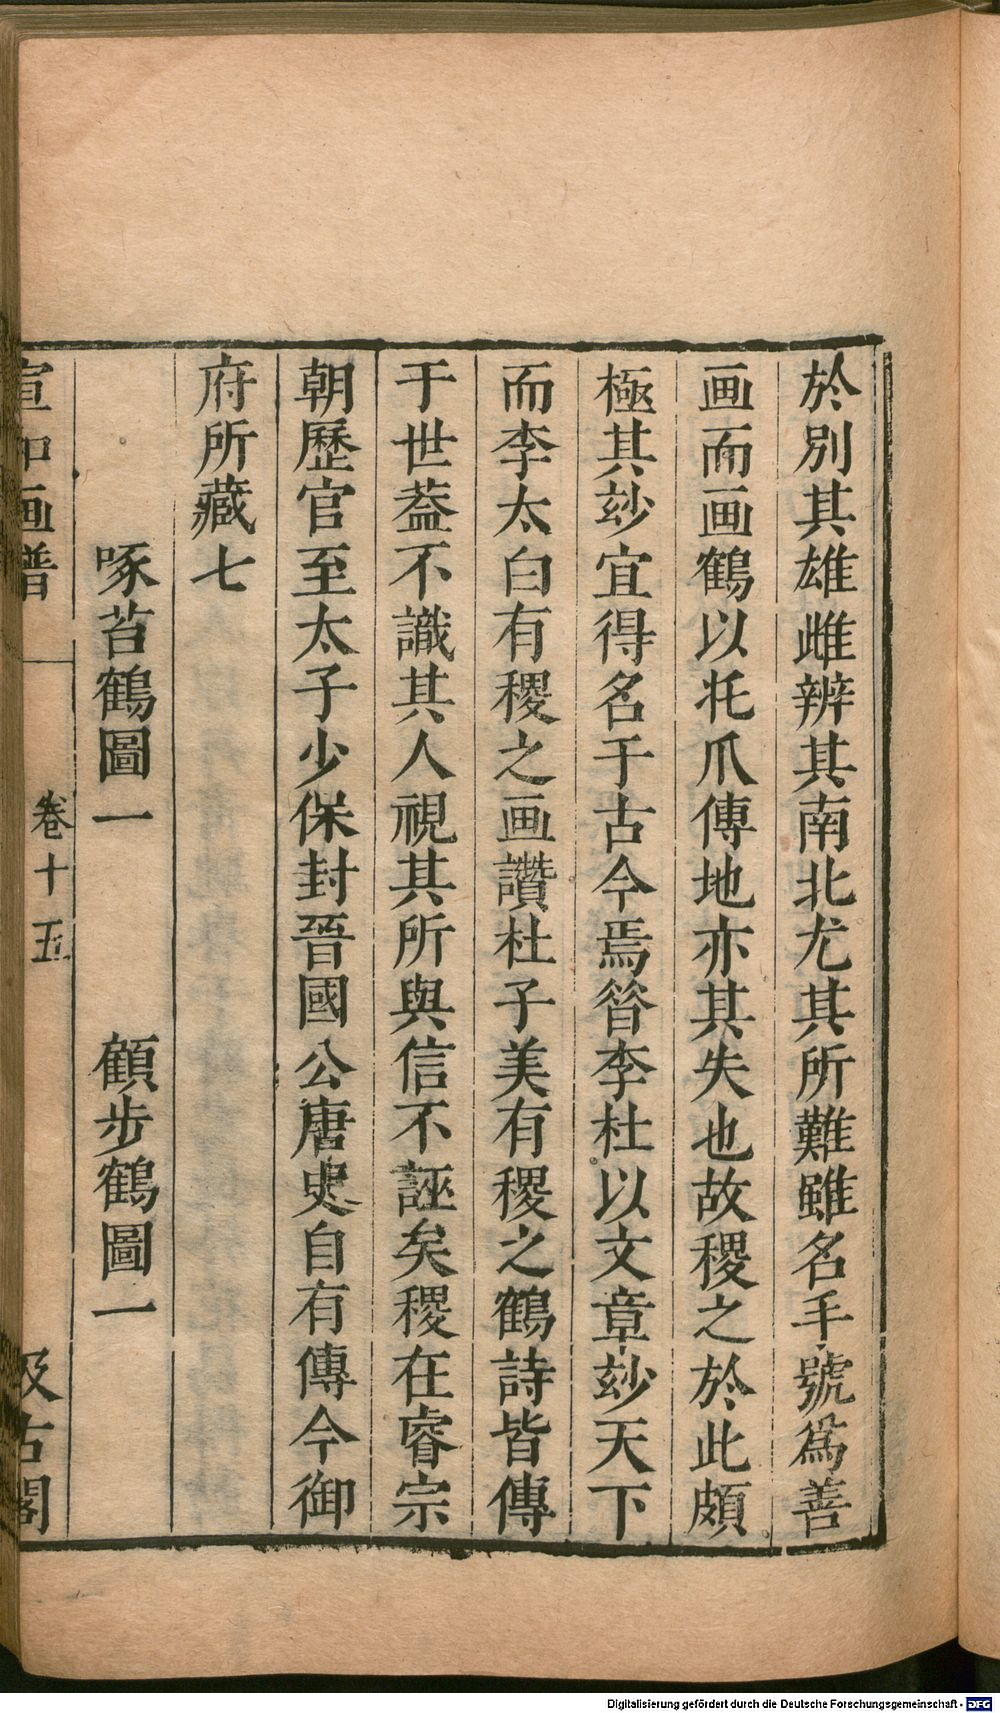 於別其雄雌辨其南北尤其所難雖名手號爲善
画而画鶴以托爪傳地亦其失也故稷之於此頗
極其玅宜得名于古今焉昝李杜以文章玅天下
而李太白有稷之画讚杜子美有稷之鶴詩皆傳
于世葢不識其人視其所與信不誣矣稷在睿宗
朝歷官至太子少保封晉國公唐史自有傳今御
府所藏七
啄苔鶴圖一 顧步鶴圖一
宣和画譜 卷十五 汲古閣
Digitalisierung gefördert durch die Deutsche Forschungsgemeinschaft - DFG